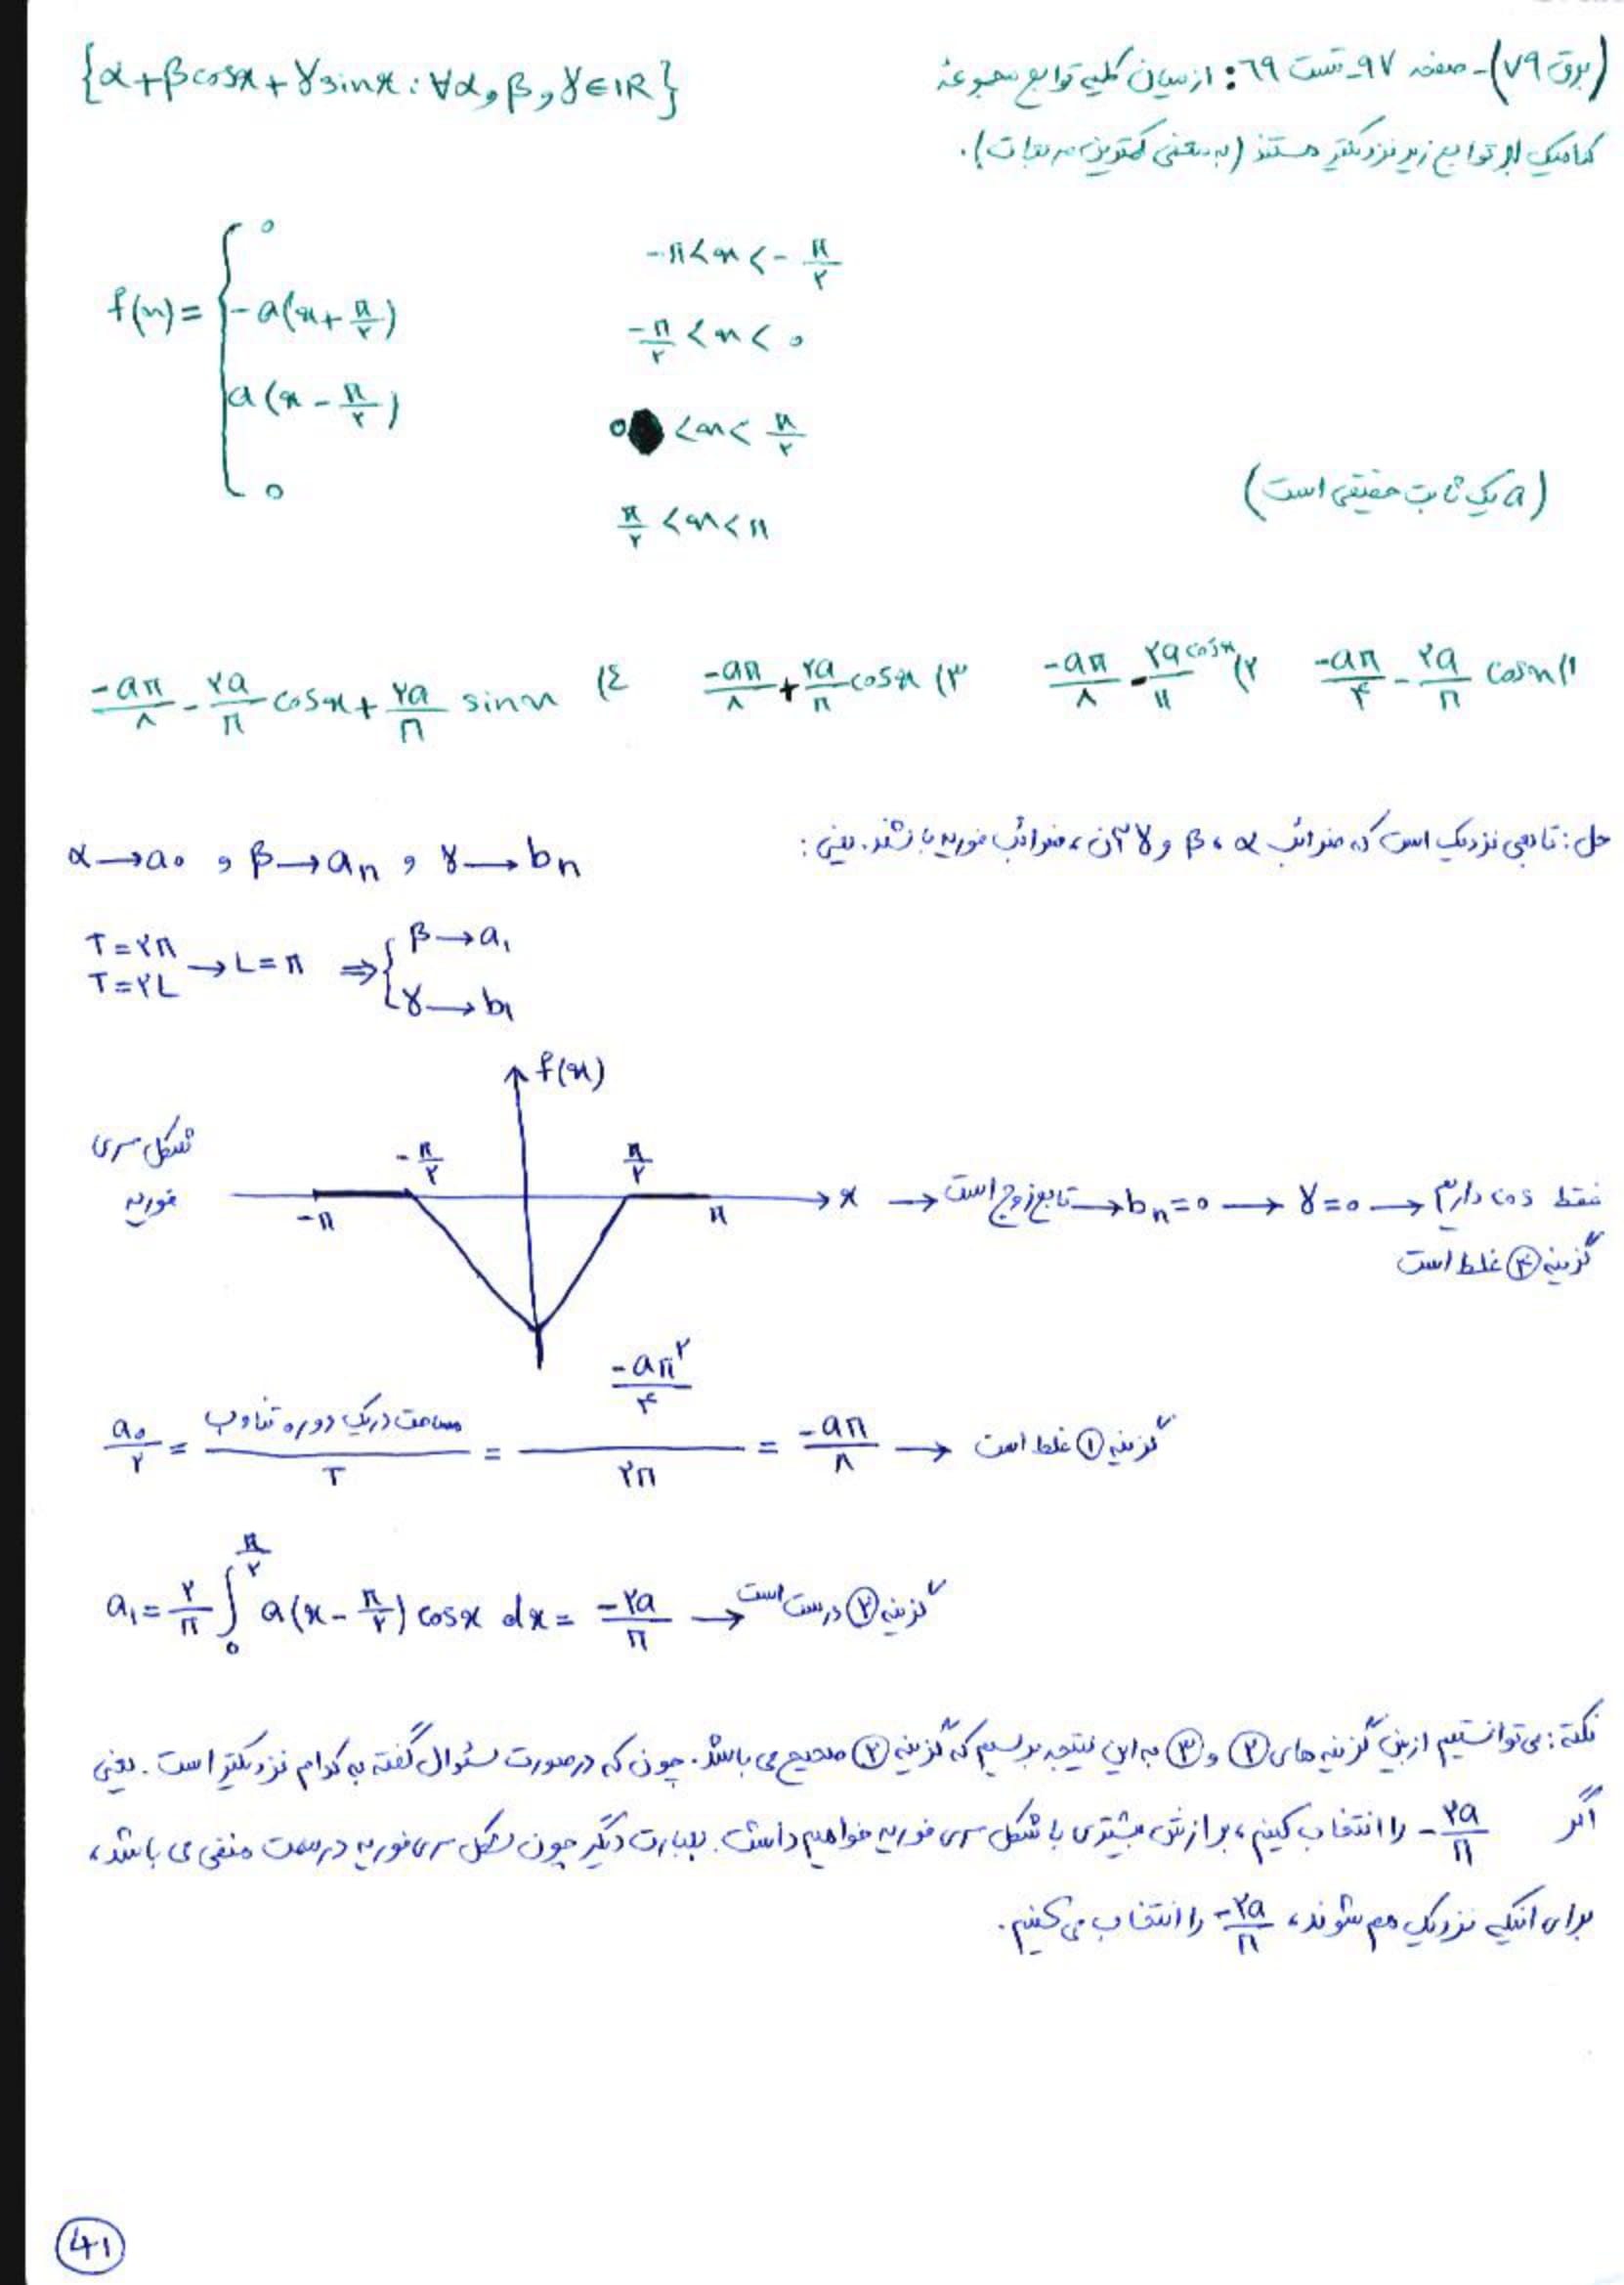 (برق ۷۹) - صفحه ۹۷ - تست ۶۹: از میان کلیه توابع مجموعه {α+βcosx+γsinx : ∀α,β,γ∈IR}
کدامیک از توابع زیر نزدیکتر هستند (به معنی کمترین مربعات).
f(x)= {
0 -π<x<-π/۲
-a(x+π/۲) -π/۲<x<0
a(x-π/۲) 0<x<π/۲
0 π/۲<x<π
(a یک ثابت حقیقی است)
۱) -aπ/۴ - ۲a/π cosx ۲) -aπ/۸ - ۲a cosx/π ۳) -aπ/۸ + ۲a/π cosx ٤) -aπ/۸ - ۲a/π cosx + ۲a/π sinx
حل: تابعی نزدیک است که ضرائب α، β و γ آن، ضرائب فوریه باشند. یعنی: α→a₀ و β→aₙ و γ→bₙ
T=۲π
T=۲L → L=π ⇒ { β→a₁
γ→b₁
f(x)
شکل سری
فوریه
-π/۲ π/۲
-π π x → تابع زوج است → bₙ=0 → γ=0 → فقط cos داریم
گزینه ۴ غلط است
a₀/۲ = مساحت در یک دوره تناوب/T = (-aπ²/۴)/۲π = -aπ/۸ → گزینه ۱ غلط است
a₁ = ۲/π ∫₀^(π/۲) a(x-π/۲) cosx dx = -۲a/π → گزینه ۲ درست است
نکته: می توانستیم از بین گزینه های ۲ و ۳ به این نتیجه برسیم که گزینه ۲ صحیح می باشد. چون که در صورت سئوال گفته به کدام نزدیکتر است. یعنی
اگر -۲a/π را انتخاب کنیم، برازش بیشتری با شکل سری فوریه خواهیم داشت. بعبارت دیگر چون شکل سری فوریه در سمت منفی می باشد،
برای اینکه نزدیک هم شوند، -۲a/π را انتخاب می کنیم.
41